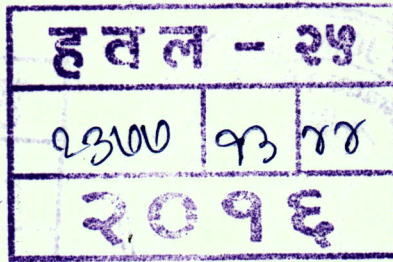 हवल - २५
२३७७ १३ ४४
२०१६